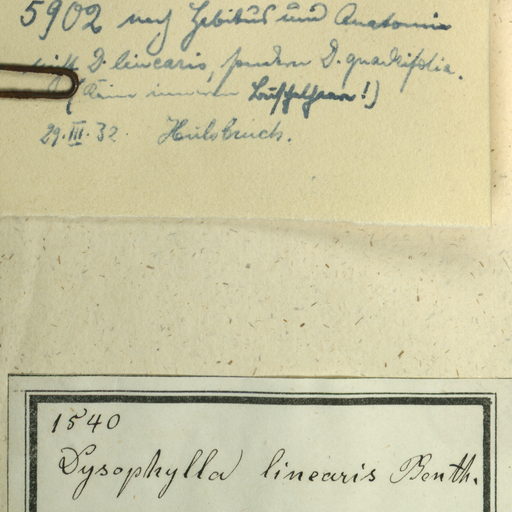 5902 nach Habitus und Anatomie
nicht D. linearis, sondern D. quadrifolia.
(Keine inneren Büschelhaare!)
29.III.32. Hulsbruch.
1540
Dysophylla linearis Benth.